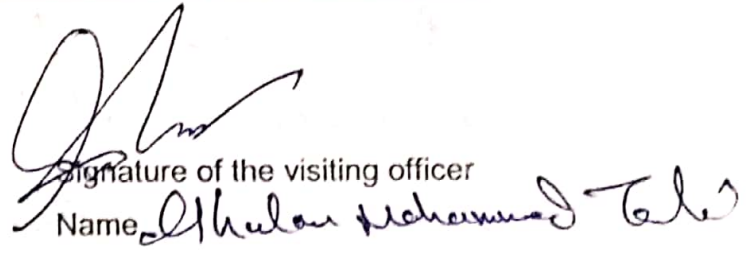 Signature of the visiting officer
Name Mohammad